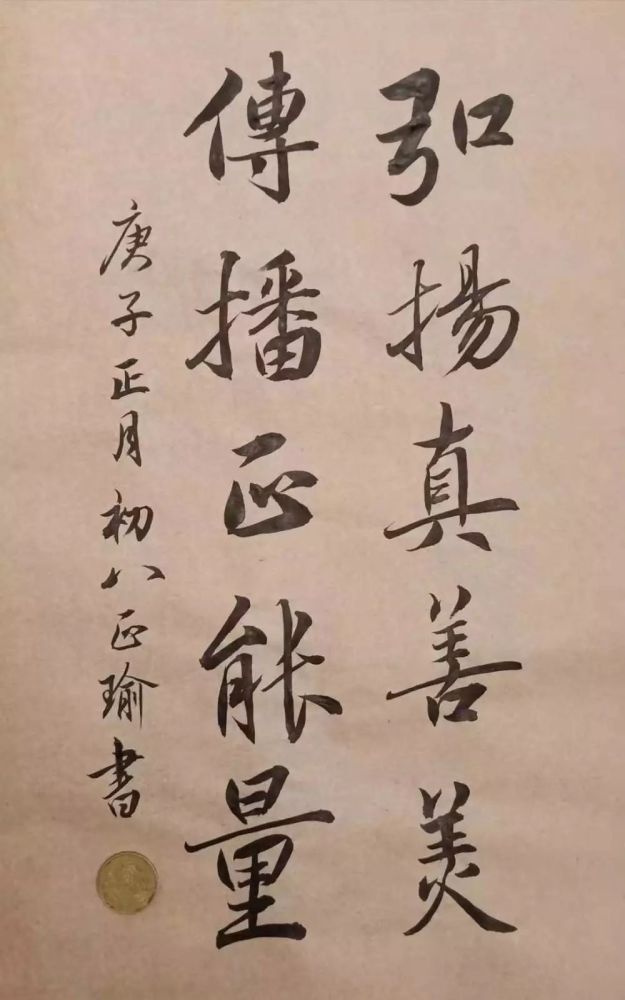 弘揚真善美
傳播正能量
庚子正月初八正瑜書